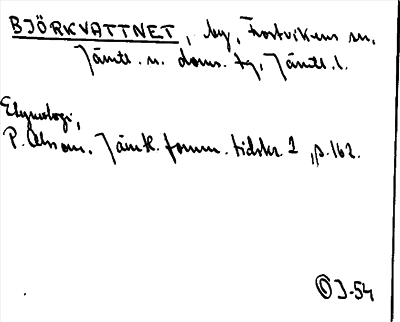 BJÖRKVATTNET, by, Frostvikens sn,
Jämtl. n. doms. tg, Jämtl. l.
Etymologi,
P. Olsson. Jämtl. fornm. tidskr. 2, p. 162.
J-54